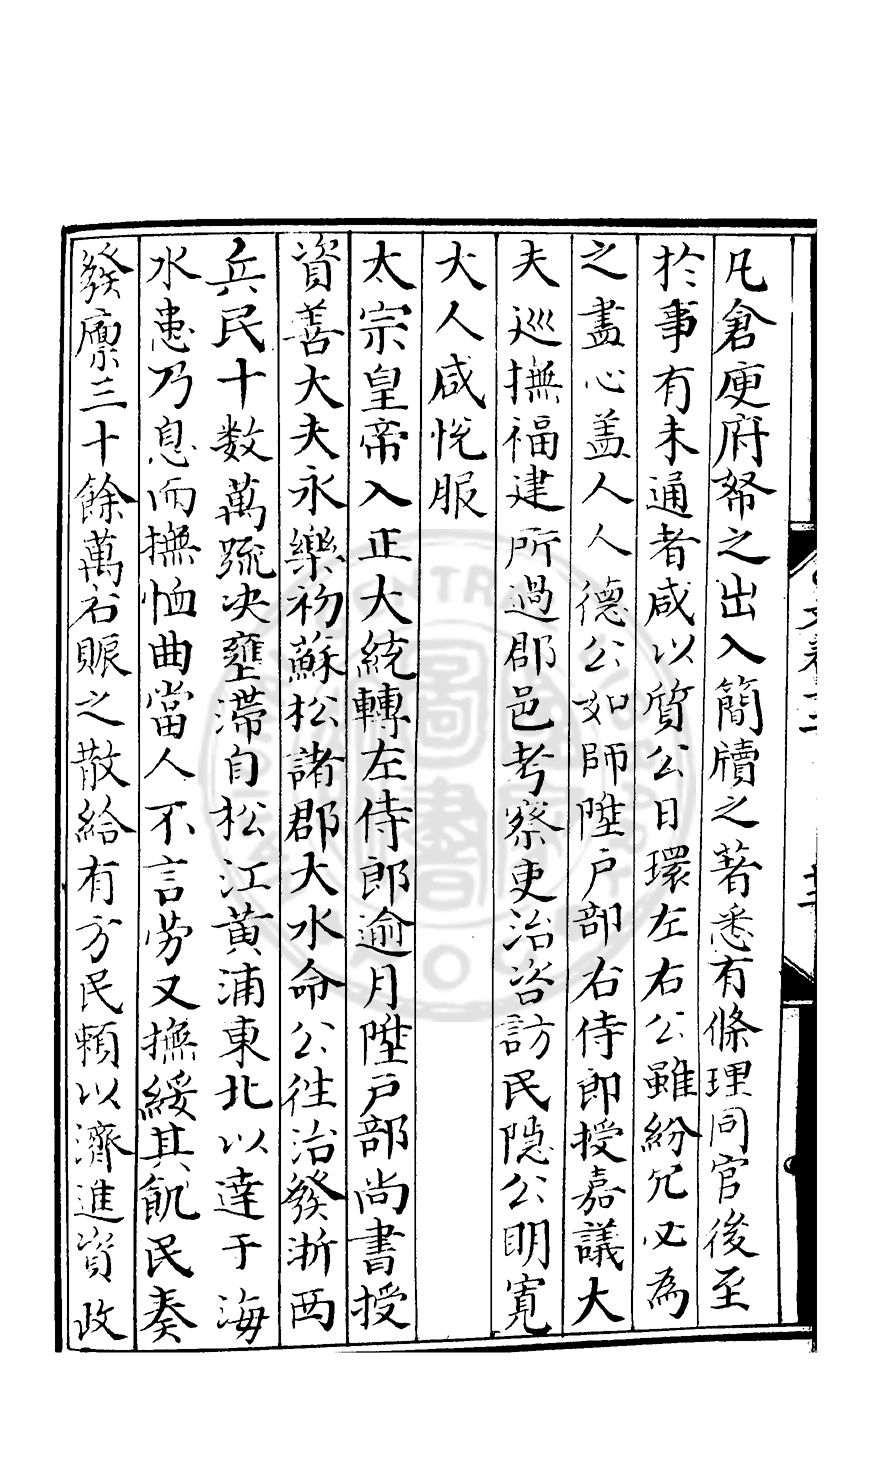 凡倉庾府帑之出入簡牘之著悉有條理同官後至
扵事有未通者咸以質公日環左右公雖紛冗必為
之盡心盖人人德公如師陞户部右侍郎授嘉議大
夫巡撫福建所過郡邑考察吏治咨訪民隐公明寛
大人咸悅服
太宗皇帝入正大統轉左侍郎逾月陞户部尚書授
資善大夫永樂初蘇松諸郡大水命公徃治發浙西
兵民十数萬疏决壅滯自松江黄浦東北以達于海
水患乃息而撫恤曲當人不言劳又撫綏其飢民奏
發廪三十餘萬石賑之散給有方民頼以濟進資政